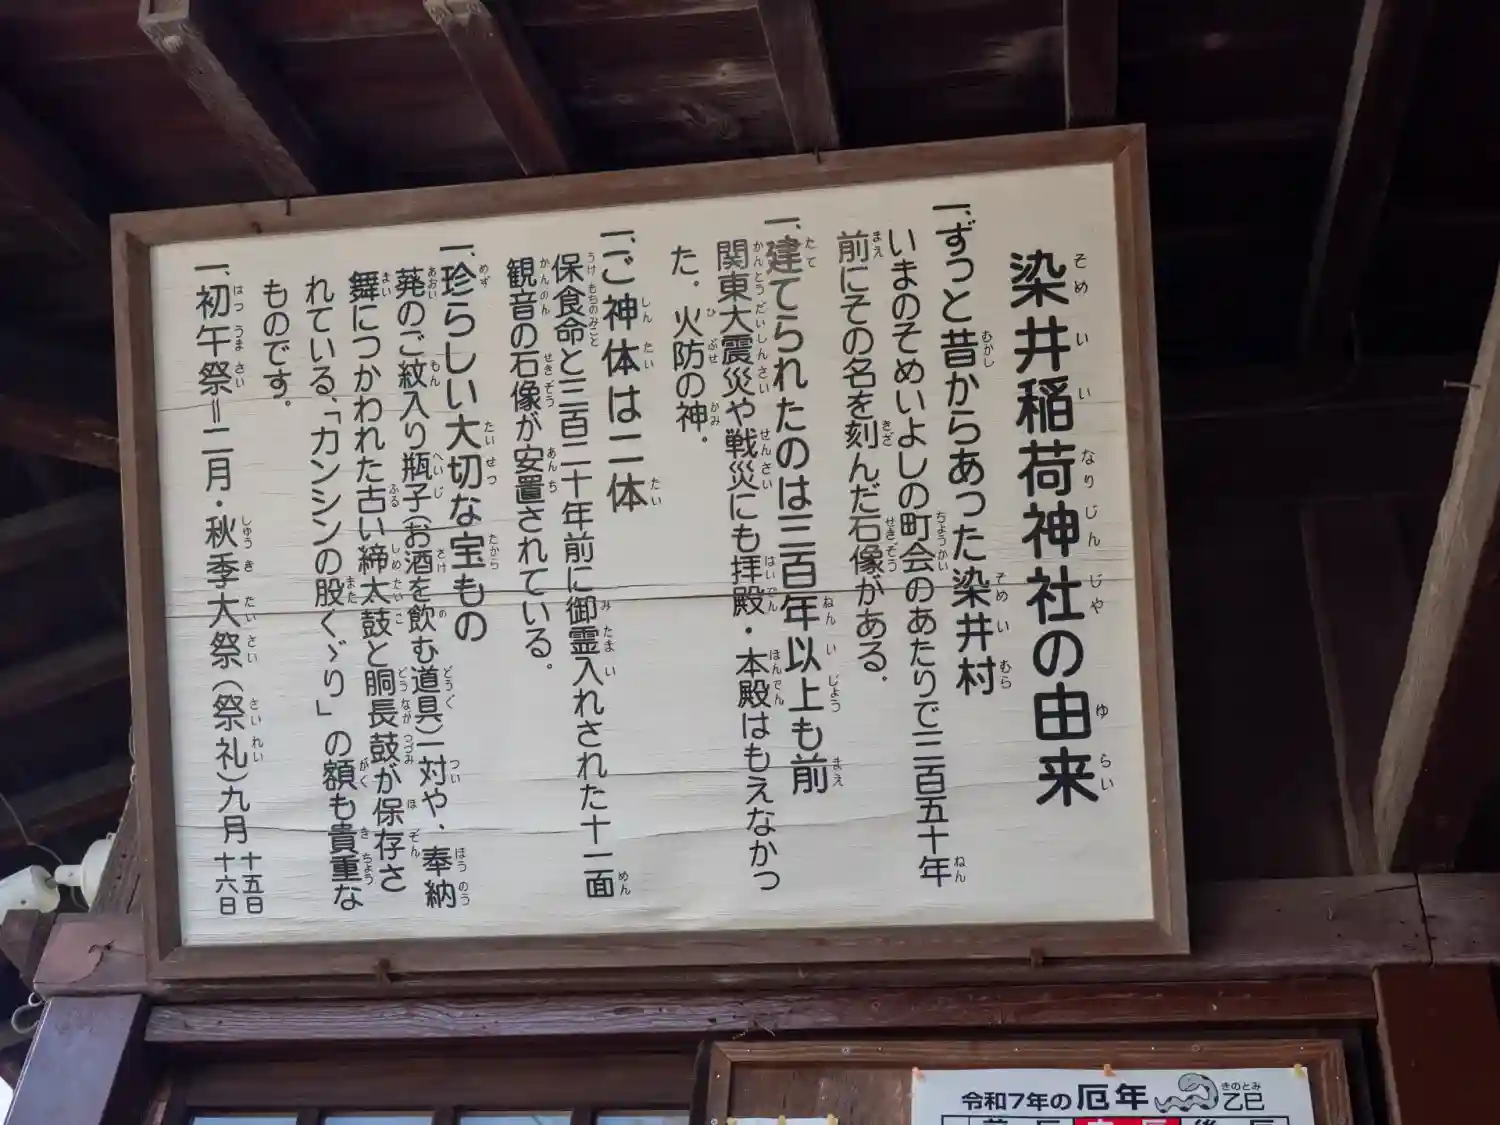 染井稲荷神社の由来
一、ずっと昔からあった染井村
いまのそめいよしの町会のあたりで三百五十年
前にその名を刻んだ石像がある。
一、建てられたのは三百年以上も前
関東大震災や戦災にも拝殿・本殿はもえなかっ
た。火防の神。
一、ご神体は二体
保食命と三百二十年前に御霊入れされた十一面
観音の石像が安置されている。
一、珍らしい大切な宝もの
葵のご紋入り瓶子(お酒を飲む道具)一対や、奉納
舞につかわれた古い締太鼓と胴長鼓が保存さ
れている、「カンシンの股くゞり」の額も貴重な
ものです。
一、初午祭=二月・秋季大祭(祭礼)九月十五日十六日
令和7年の厄年 乙巳